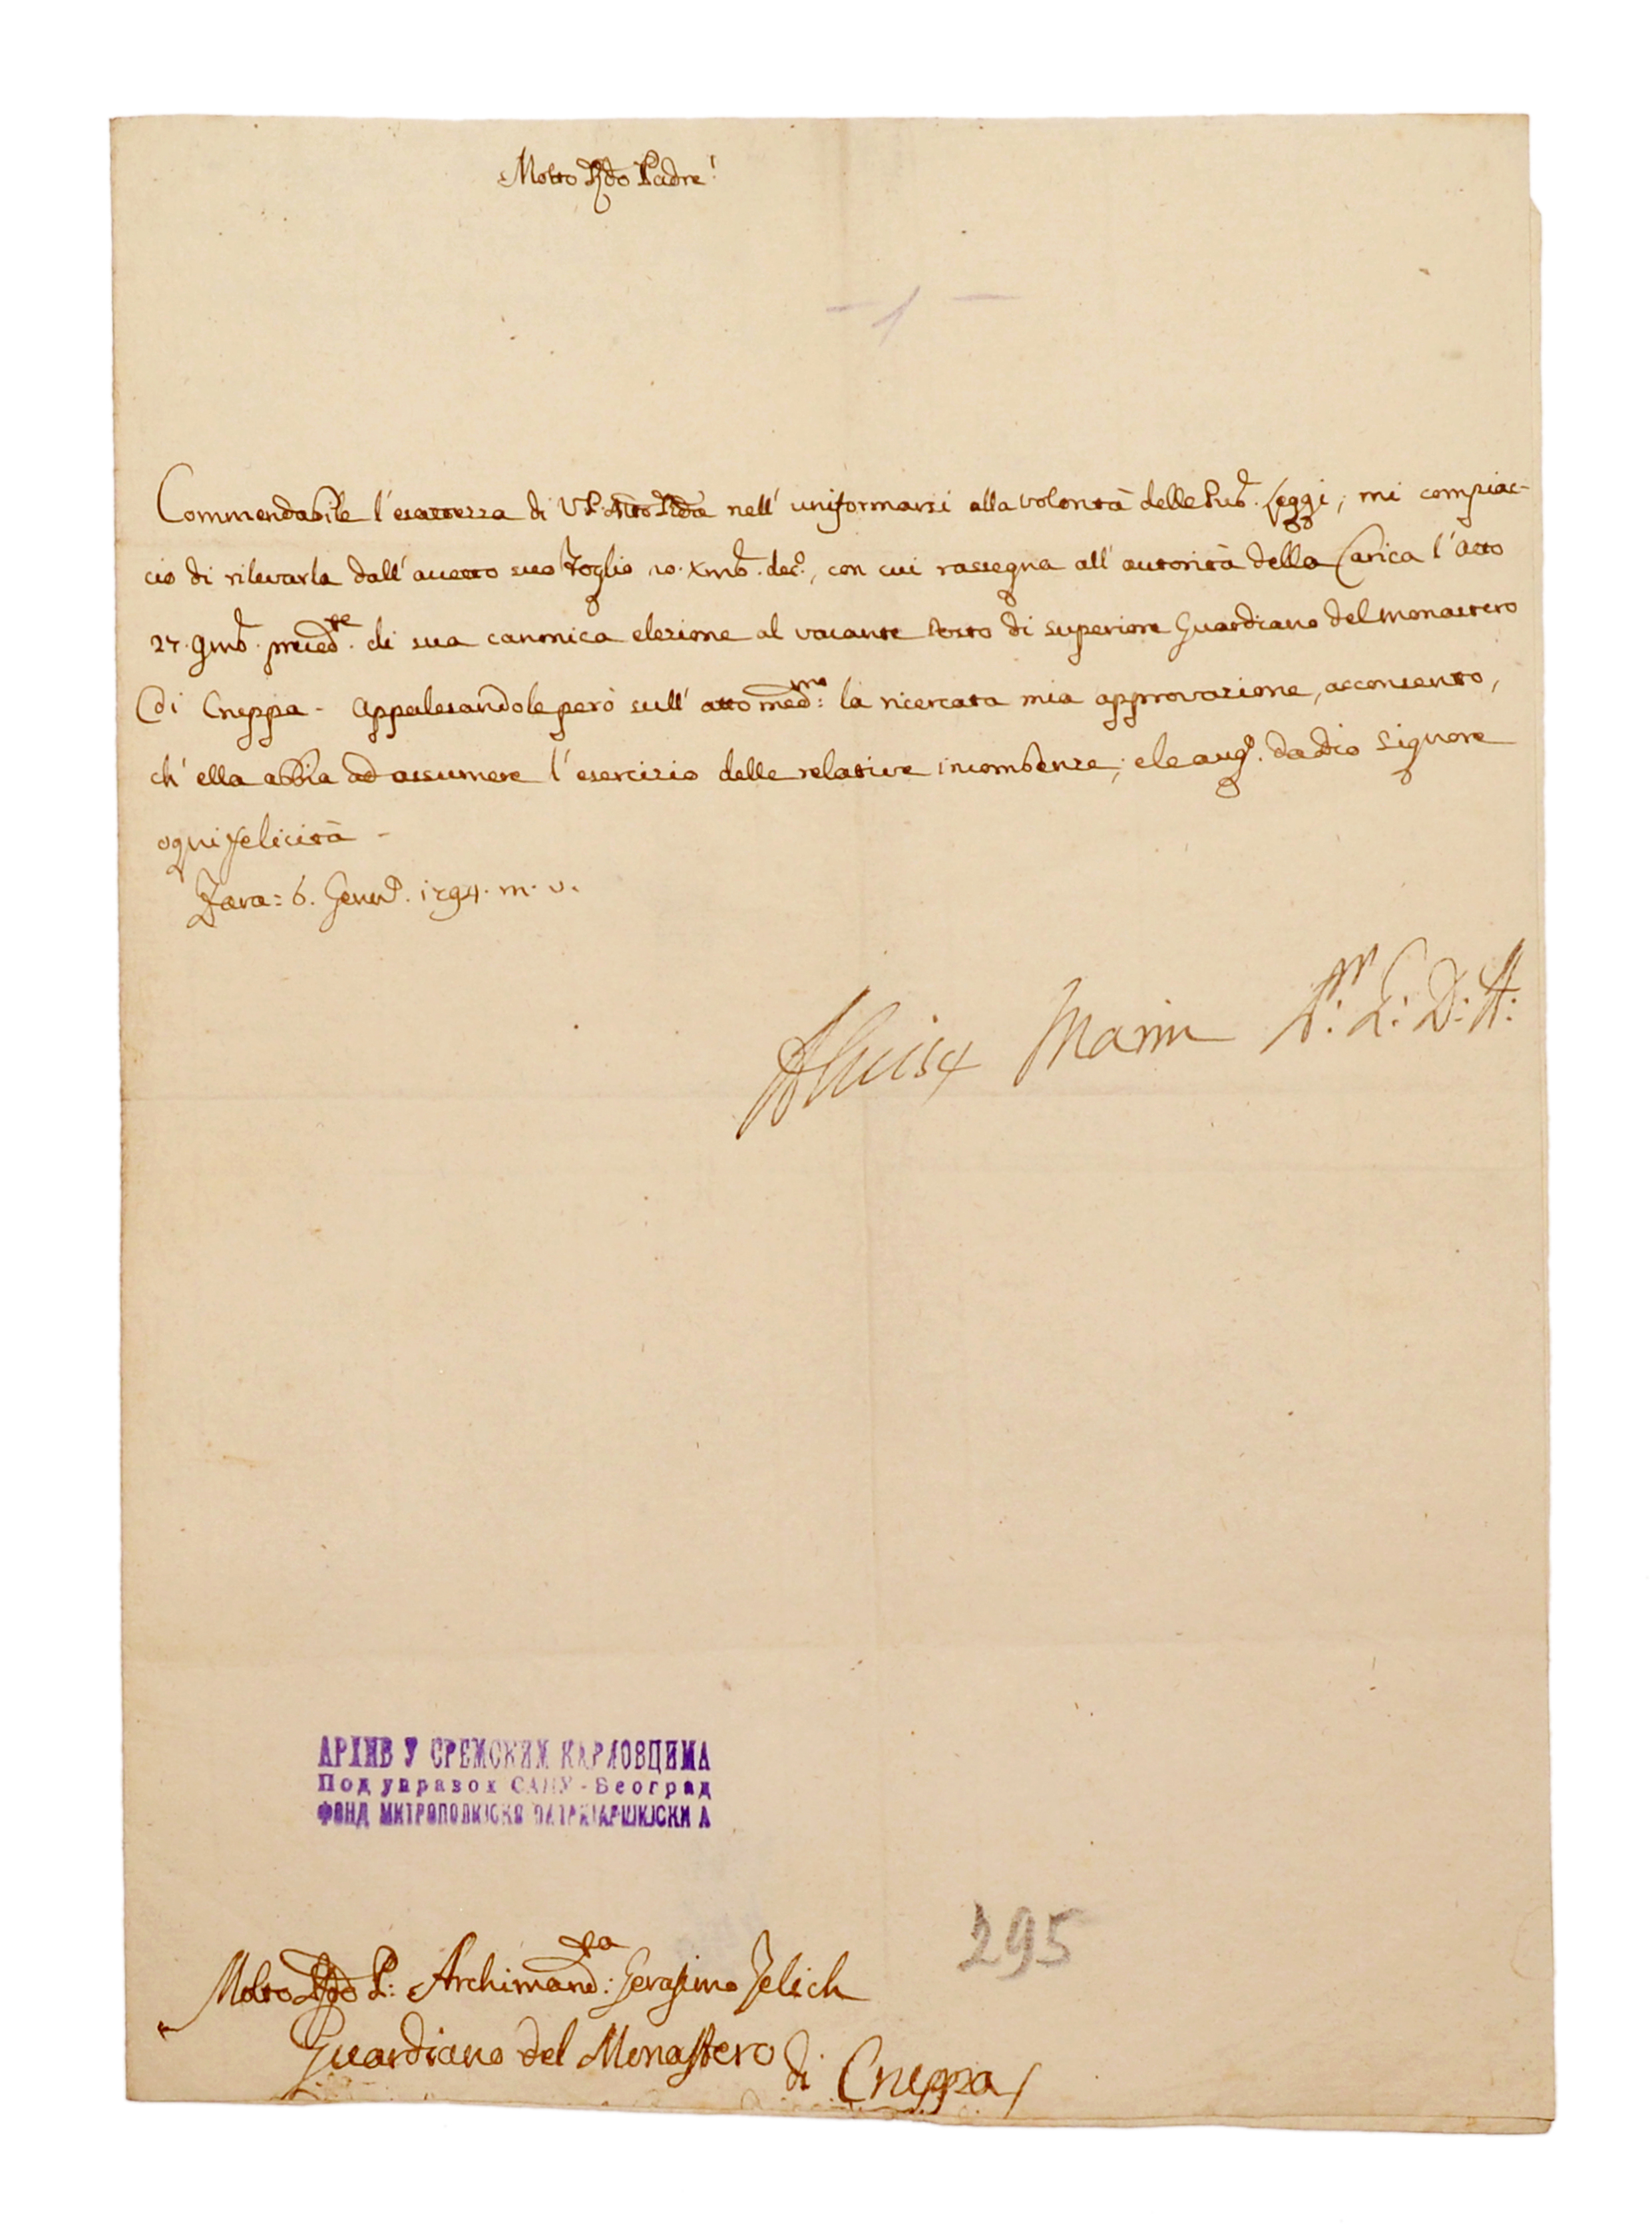 Molto Rdo Padre!
- 1 -
Commendabile l'esattezza di V.P. Mto Rda nell' uniformarsi alla volontà delle Pub. Leggi, mi compiac-
cio di rilevarla dall' accetto suo foglio 10. Xmb. dec., con cui rassegna all' autorità della Carica l'Atto
27. 9mb. preced.te di sua canonica elezione al vacante Posto di superiore Guardiano del Monastero
di Cneppa - Appalesandole però sull' atto med.mo: la ricercata mia approvazione, acconsento,
ch' ella abbia ad assumere l' esercizio delle relative incombenze; e le aug.o da Dio Signore
ogni felicità -
Zara: 6. Genn.o 1794. m. v.
Aluise Marin P.r: L: D: A:
АРХИВ У СРЕМСКИМ КАРЛОВЦИМА
Под управом САНУ - Београд
ФОНД МИТРОПОЛИЈСКО ПАТРИЈАРШИЈСКИ А
295
Molto Rdo P: Archimand.ta: Gerasimo Zelich
Guardiano del Monastero di Cneppa